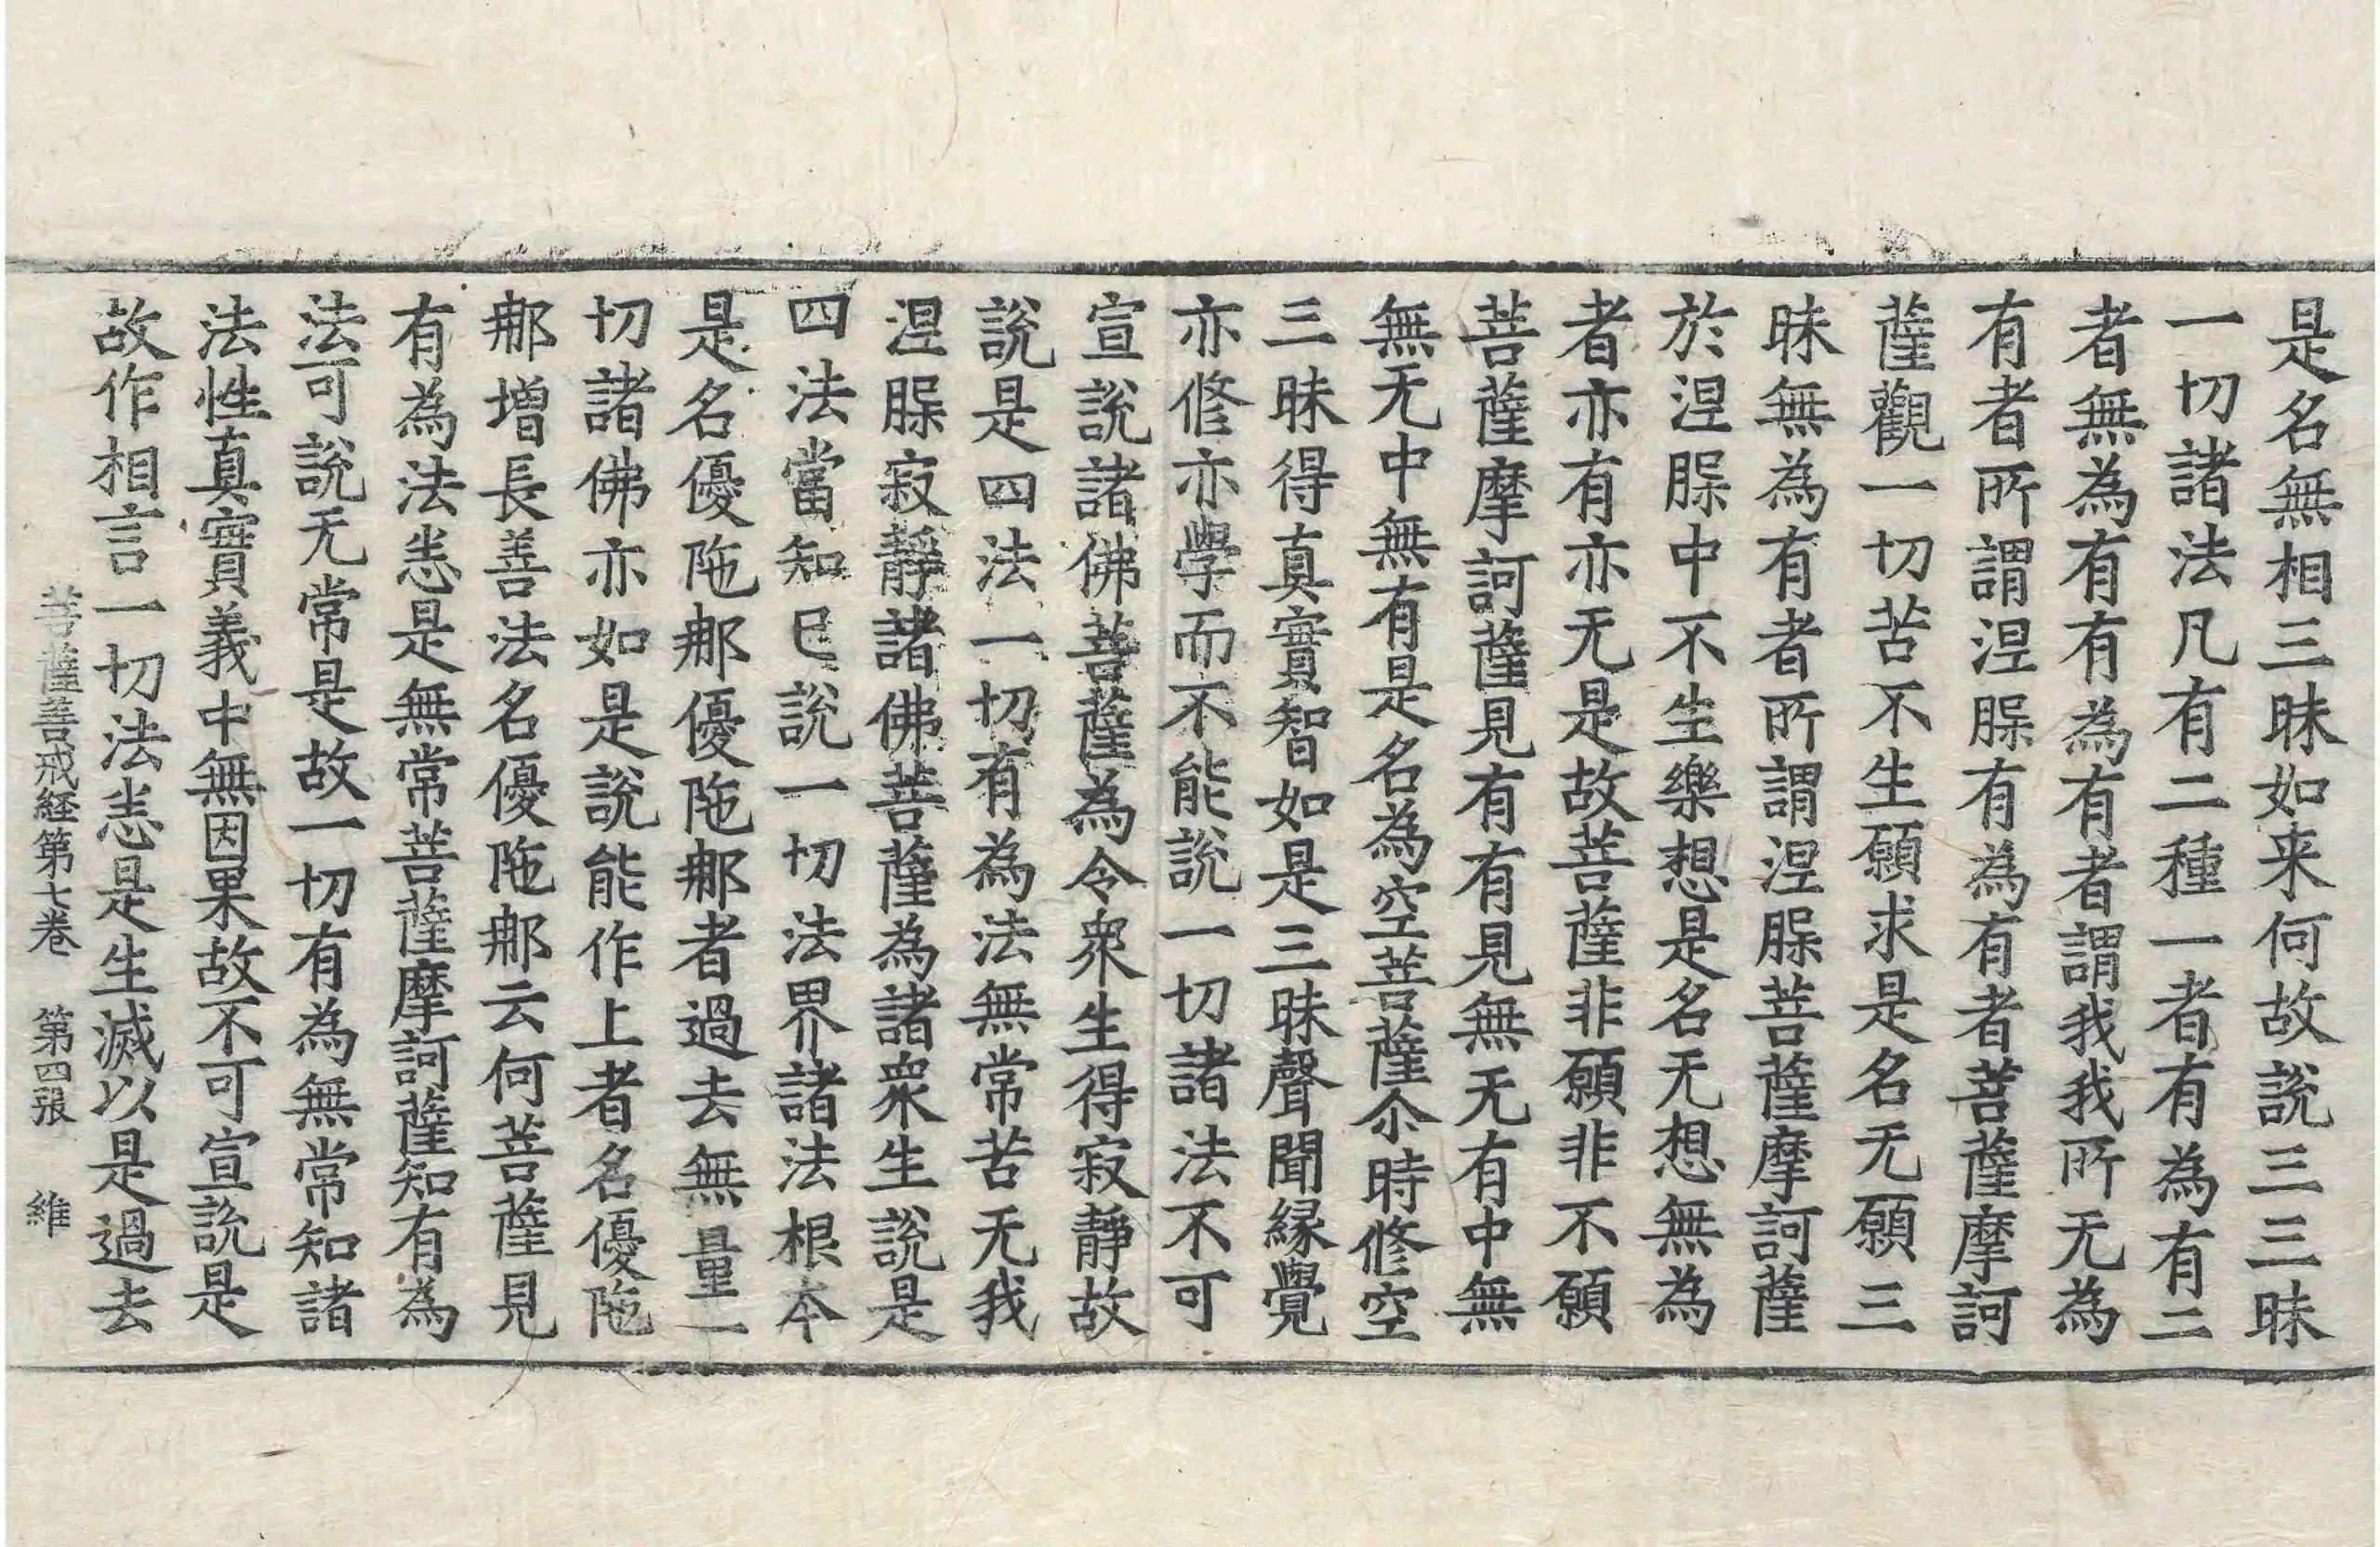 是名無相三昧如来何故說三三昧
一切諸法凡有二種一者有為有二
者無為有有為有者謂我我所无為
有者所謂涅脲有為有者菩薩摩訶
薩觀一切苦不生願求是名无願三
昧無為有者所謂涅脲菩薩摩訶薩
於涅脲中不生樂想是名无想無為
者亦有亦无是故菩薩非願非不願
菩薩摩訶薩見有有見無无有中無
無无中無有是名為空菩薩尒時修空
三昧得真實智如是三昧聲聞緣覺
亦修亦學而不能說一切諸法不可
宣說諸佛菩薩為令衆生得寂靜故
說是四法一切有為法無常苦无我
涅脲寂靜諸佛菩薩為諸衆生說是
四法當知已說一切法界諸法根本
是名優陁那優陁那者過去無量一
切諸佛亦如是說能作上者名優陁
那增長善法名優陁那云何菩薩見
有為法悉是無常菩薩摩訶薩知有為
法可說无常是故一切有為無常知諸
法性真實義中無因果故不可宣說是
故作相言一切法悉是生滅以是過去
菩薩善戒経第七卷　第四張　維